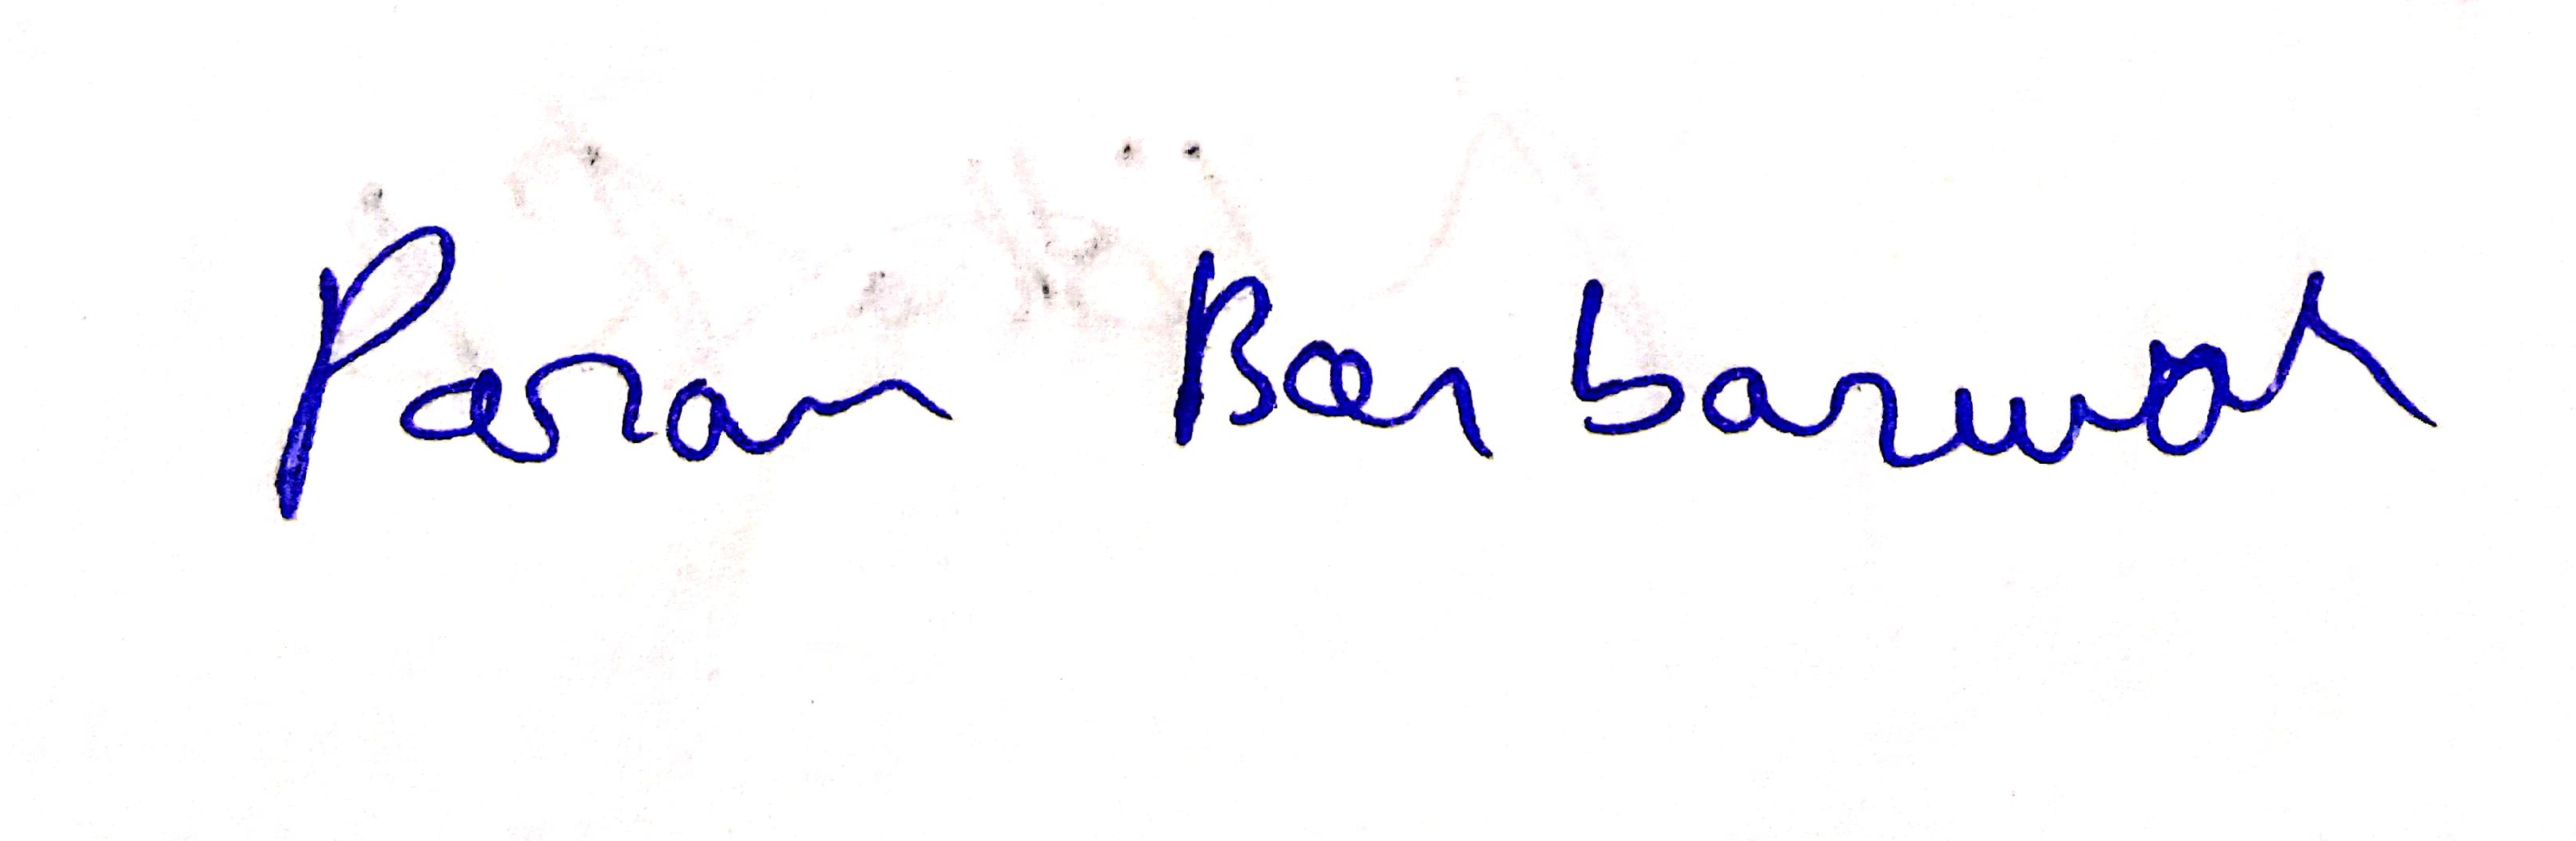 Paran Barbarwah